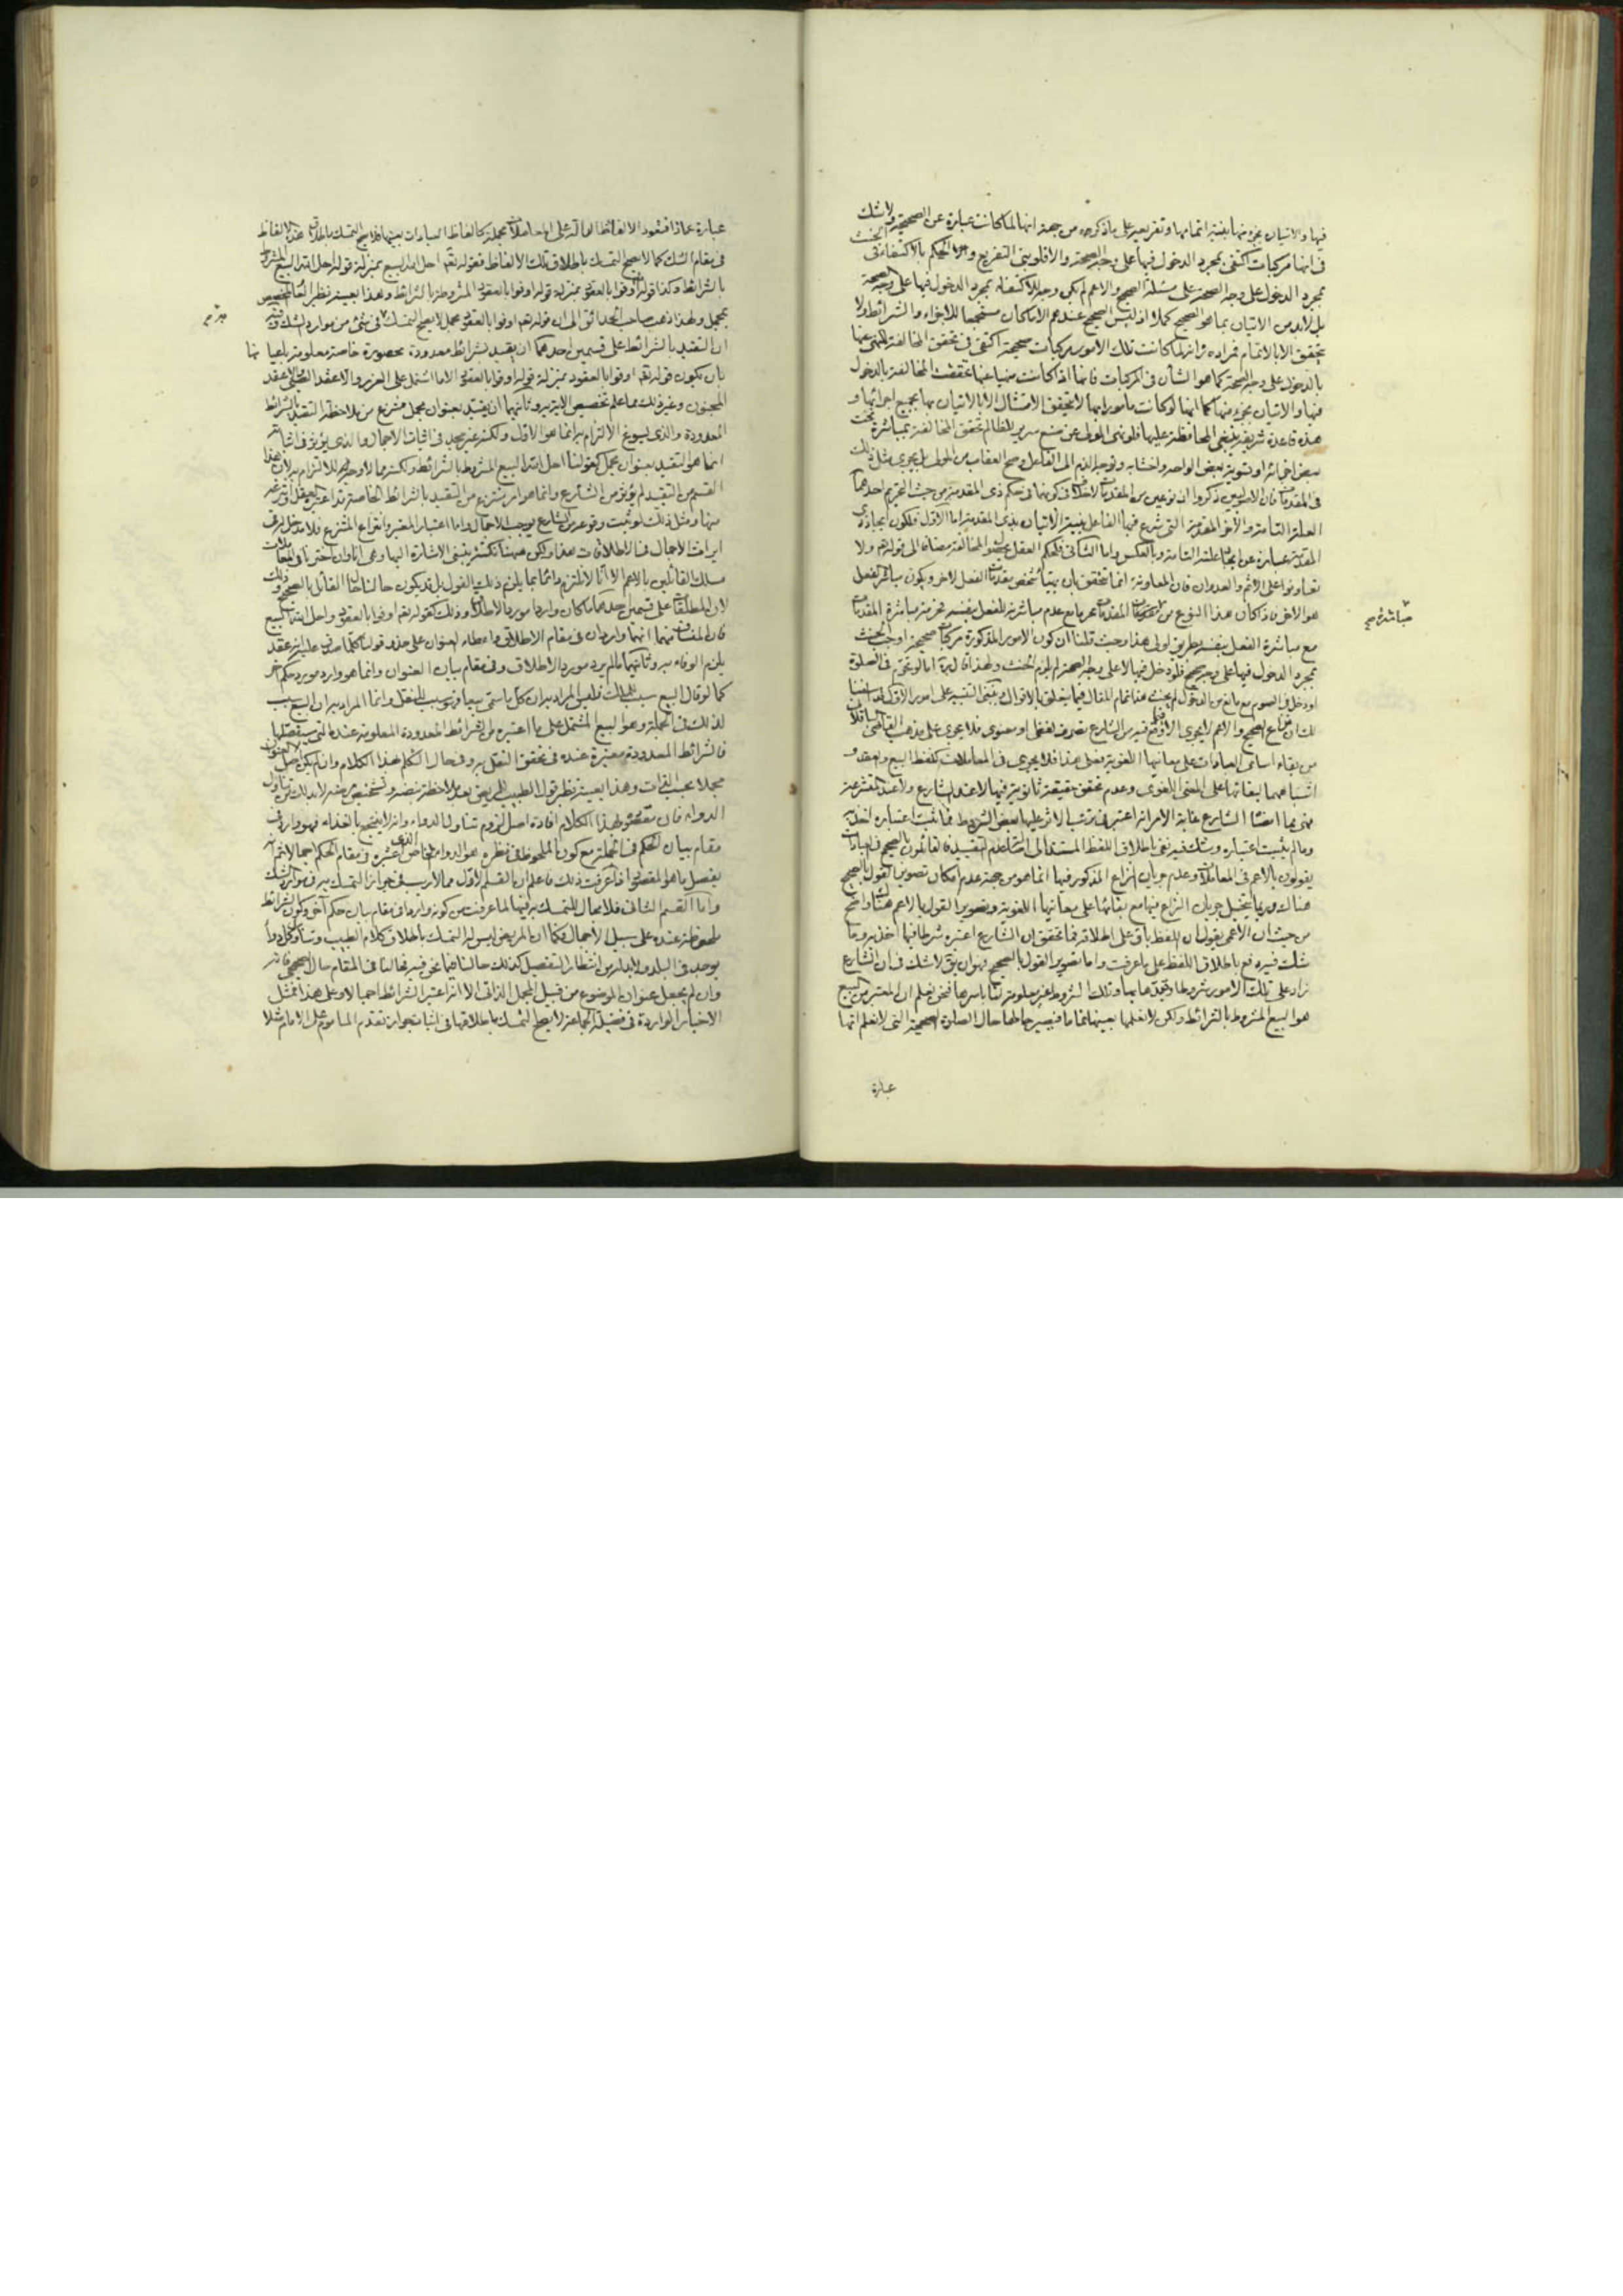 فيها والاتيان بجزء منها بنية اتمامها وتفريعه على ما ذكره من جهة انها لما كانت عبارة عن الصحيحة ولا شك
في انها مركبات اكتفى بمجرد الدخول فيها على وجه الصحة والا فلو بنى التفريع والحكم بالاكتفاء في الحنث
بمجرد الدخول على وجه الصحة على مسئلة الصحيح والاعم لم يكن وجه للاكتفاء بمجرد الدخول فيها على وجه الصحة
بل لا بد من الاتيان بما هو الصحيح كملا اذ ليس الصحيح عندهم الا ما كان مستجمعا للاجزاء والشرائط ولا
يتحقق الا بالاتمام فمراده ره انه لما كانت تلك الامور مركبات صحيحة اكتفى في تحقق المخالفة للنهي عنها
بالدخول على وجه الصحة كما هو الشأن في المركبات فانها اذا كانت منهيا عنها تحققت المخالفة بالدخول
فيها والاتيان بجزء منها كما انها لو كانت مأمورا بها لا يتحقق الامتثال الا بالاتيان بها بجميع اجزائها و
هذه قاعدة شريفة ينبغي المحافظة عليها فلو نهى المولى عن صنع سرير للظالم تحقق المخالفة بمباشرة نحت
بعض اجزائه او تسوية بعض الواحه واخشابه وتوجه الذم الى الفاعل وصح العقاب من المولى بل يجري مثل ذلك
في المقدمات فان الاصوليين ذكروا ان نوعين من المقدمات لا اشكال في كونهما في حكم ذي المقدمة من حيث التحريم احدهما
العلة التامة والاخر المقدمة التي شرع فيها الفاعل بنية الاتيان بذي المقدمة اما الاول فلكون ايجاد ذي
المقدمة عبارة عن ايجاد علته التامة وبالعكس واما الثاني فلحكم العقل بحصول المخالفة مضافا الى قوله تعالى ولا
تعاونوا على الاثم والعدوان فان المعاونة انما تتحقق بان يهيأ شخص مقدمات الفعل لاخر ويكون مباشر الفعل
هو الاخر فاذا كان هذا النوع من المقدمات محرما مع عدم مباشرته للفعل بنفسه فحرمة مباشرة المقدمات
مع مباشرة الفعل بنفسه بطريق اولى هذا وحيث قلنا ان كون الامور المذكورة مركبات صحيحة اوجب الحنث
بمجرد الدخول فيها على وجه صحيح فلو دخل فيها لا على وجه الصحة لم يلزم الحنث ولهذا قال ره اما لو تحرم في الصلوة
او دخل في الصوم مع مانع من الدخول لم يحنث هذا تمام المقال فيما يتعلق بالاقوال وينبغي التنبيه على امور الاول قد اسلفنا
لك ان نزاع الصحيح والاعم لا يجري الا فيما وقع فيه من الشارع تصرف لفظي او معنوي فلا يجري على مذهب القاضي الباقلاني
من بقاء اسامي العبادات على معانيها اللغوية فعلى هذا فلا يجري في المعاملات كلفظ البيع والعقد و
اشباههما لبقائها على المعنى اللغوي وعدم تحقق حقيقة ثانوية فيها لا عند الشارع ولا عند المتشرعة
فهي مما امضاه الشارع غاية الامر انه اعتبر في ترتب الاثر عليها بعض الشروط فما ثبت اعتباره اخذ به
وما لم يثبت اعتباره وشك فيه نفى باطلاق اللفظ المستند الى اصالة عدم التقييد فالقائلون بالصحيح في العبادات
يقولون بالاعم في المعاملات وعدم جريان النزاع المذكور فيها انما هو من جهة عدم امكان تصوير القول بالصحيح
هناك وربما يتخيل جريان النزاع فيها مع بقائها على معانيها اللغوية وتصوير القول بالاعم هناك واضح
من حيث ان الاعمي يقول ان اللفظ باق على اطلاقه فما تحقق ان الشارع اعتبره شرطا فيها اخذ به وما
شك فيه دفع باطلاق اللفظ على ما عرفت واما تصوير القول بالصحيح فهو ان يق لا شك في ان الشارع
زاد على تلك الامور شروطا وقيدها بها وتلك الشروط غير معلومة لنا باسرها فنحن نعلم ان المعتبر من البيع
هو البيع المشروط بالشرائط ولكن لا نعلمها بعينها تماما فيصير حالها حال الصلوة الصحيحة التي لا نعلم انها
عبارة
مباشرة صح
عبارة عماذا فتعود الالفاظ الدالة على المعاملات مجملة كالفاظ العبادات بعينها فلا يصح التمسك باطلاق هذه الالفاظ
في مقام الشك كما لا يصح التمسك باطلاق تلك الالفاظ فقوله تعالى احل الله البيع بمنزلة قوله احل الله البيع المشروط
بالشرائط وكذا قوله اوفوا بالعقود بمنزلة قوله اوفوا بالعقود المشروطة بالشرائط وهذا بعينه نظير العام المخصص
بمجمل ولهذا ذهب صاحب الحدائق الى ان قوله تعالى اوفوا بالعقود مجمل لا يصح التمسك به في شئ من موارد الشك وفيه
ان التقييد بالشرائط على قسمين احدهما ان يقيد بشرائط معدودة محصورة خاصة معلومة باعيانها
بان يكون قوله تعالى اوفوا بالعقود بمنزلة قوله اوفوا بالعقود الا ما اشتمل على الغرر والا عقد الصبي والا عقد
المجنون وغير ذلك مما علم تخصيص الاية به وثانيهما ان يقيد بعنوان مجمل منتزع من ملاحظة التقييد بالشرائط
المعدودة والذي يسوغ الالتزام به انما هو الاول ولكنه غير مجد في اثبات الاجمال والذي يؤثر في اثباته
انما هو التقييد بعنوان مجمل كقولنا احل الله البيع المشروط بالشرائط ولكنه مما لا وجه للالتزام به لان هذا
القسم من التقييد لم يؤثر من الشارع وانما هو امر ينتزع من التقييد بالشرائط الخاصة
منها ومثل ذلك لو ثبت وقوعه من الشارع يوجب الاجمال واما اعتبار المعتبر وانتزاع المنتزع فلا مدخل له في
ايراث الاجمال في الاطلاقات هذا ولكن هيهنا نكتة ينبغي الاشارة اليها وهي انا وان اخترنا في المعاملات
مسلك القائلين بالاعم الا انا لا نلتزم دائما بما يلزم ذلك القول بل قد يكون حالنا حال القائل بالصحيح وذلك
لان المطلقات على قسمين احدهما ما كان واردا مورد الاطلاق وذلك كقوله تعالى اوفوا بالعقود واحل الله البيع
فان المنساق منهما انهما واردان في مقام الاطلاق واعطاء العنوان على حذو قولنا كلما صدق عليه انه عقد
يلزم الوفاء به وثانيهما ما لم يرد مورد الاطلاق وفي مقام بيان العنوان وانما هو وارد مورد حكم اخر
كما لو قال البيع سبب للملك فليس المراد به ان كل ما سمي بيعا فهو سبب للنقل وانما المراد به ان البيع سبب
لذلك في الجملة وهو البيع المشتمل على ما اعتبره من الشرائط المعدودة المعلومة عنده التي سيفصلها
فالشرائط المعدودة معتبرة عنده في تحقق النقل به وفي حال التكلم بهذا الكلام وان لم يكن اصل العنوان
مجملا بحسب الذات وهذا بعينه نظير قول الطبيب للمريض بعد ملاحظة نبضه وتشخيص مرضه لا بد لك من تناول
الدواء فان مقصوده بهذا الكلام افادة اصل لزوم تناول الدواء وانه لا ينجع بالغذاء فهو وارد في
مقام بيان الحكم في الجملة مع كون الملحوظ في نظره هو الدواء الخاص الذي اعتبره في مقام الحكم اجمالا ثم انه
يفصل ما هو المقصود اذا عرفت ذلك فاعلم ان القسم الاول مما لا ريب في جواز التمسك به في موارد الشك
واما القسم الثاني فلا مجال للتمسك به فيها لما عرفت من كونه واردا في مقام بيان حكم آخر وكون الشرائط
ملحوظة عنده على سبيل الاجمال فكما ان المريض ليس له التمسك باطلاق كلام الطبيب وتناول كل دواء
يوجد في البلد ولا بد له من انتظار التفصيل كذلك حالنا فيما نحن فيه فحالنا في المقام حال الصحيحي فانه
وان لم يجعل عنوان الموضوع من قبيل المجمل الذاتي الا انه اعتبر الشرائط اجمالا وعلى هذا فمثل
الاخبار الواردة في فضيلة الجماعة لا يصح التمسك باطلاقها في اثبات جواز تقدم الماموم على الامام مثلا